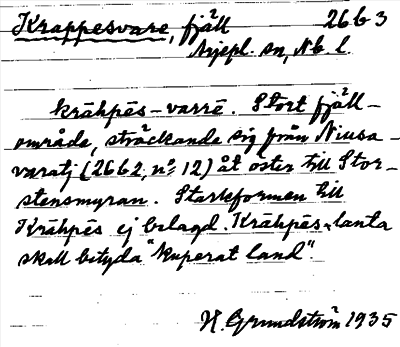 Krappesvare, fjäll 26b3
Arjepl. sn, Nb. l.
krähpēs-varrē. Stort fjäll-
område, sträckande sig från Niusa-
varatj (26b2, nº 12) åt öster till Stor-
stensmyran. Starkformen till
Krähpēs ej belagd. Krähpēs-lanta
skall betyda "kuperat land".
H. Grundström 1935